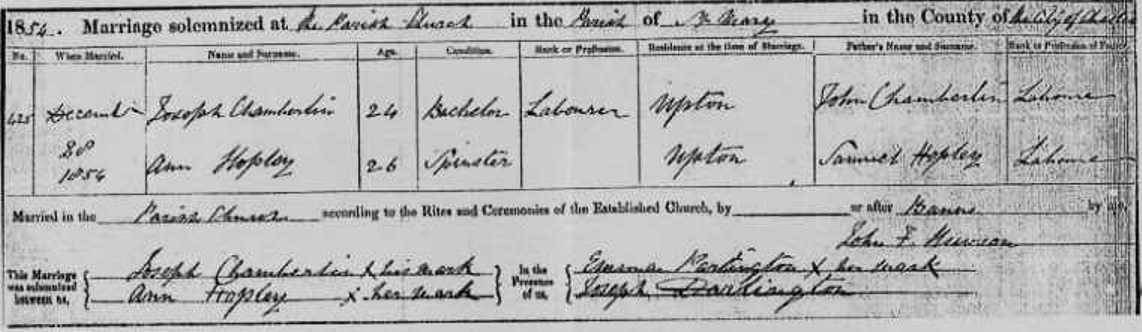 1854. Marriage solemnized at the Parish Church in the Parish of St Mary in the County of the City of Chester
No. When Married. Name and Surname. Age. Condition. Rank or Profession. Residence at the time of Marriage. Father's Name and Surname. Rank or Profession of Father.
425 December Joseph Chamberlin 24 Bachelor Labourer Upton John Chamberlin Labourer
28 1854 Ann Hopley 26 Spinster Upton Samuel Hopley Labourer
Married in the Parish Church according to the Rites and Ceremonies of the Established Church, by or after Banns by me,
John F.
This Marriage was solemnized between us, Joseph Chamberlin x his mark In the Presence of us, Emma Partington x her mark
Ann Hopley x her mark Joseph Darlington